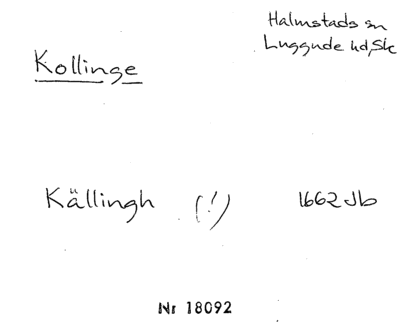 Halmstads sn
Luggude hd, Sk
Kollinge
Källingh (!) 1662 Jb
Nr 18092